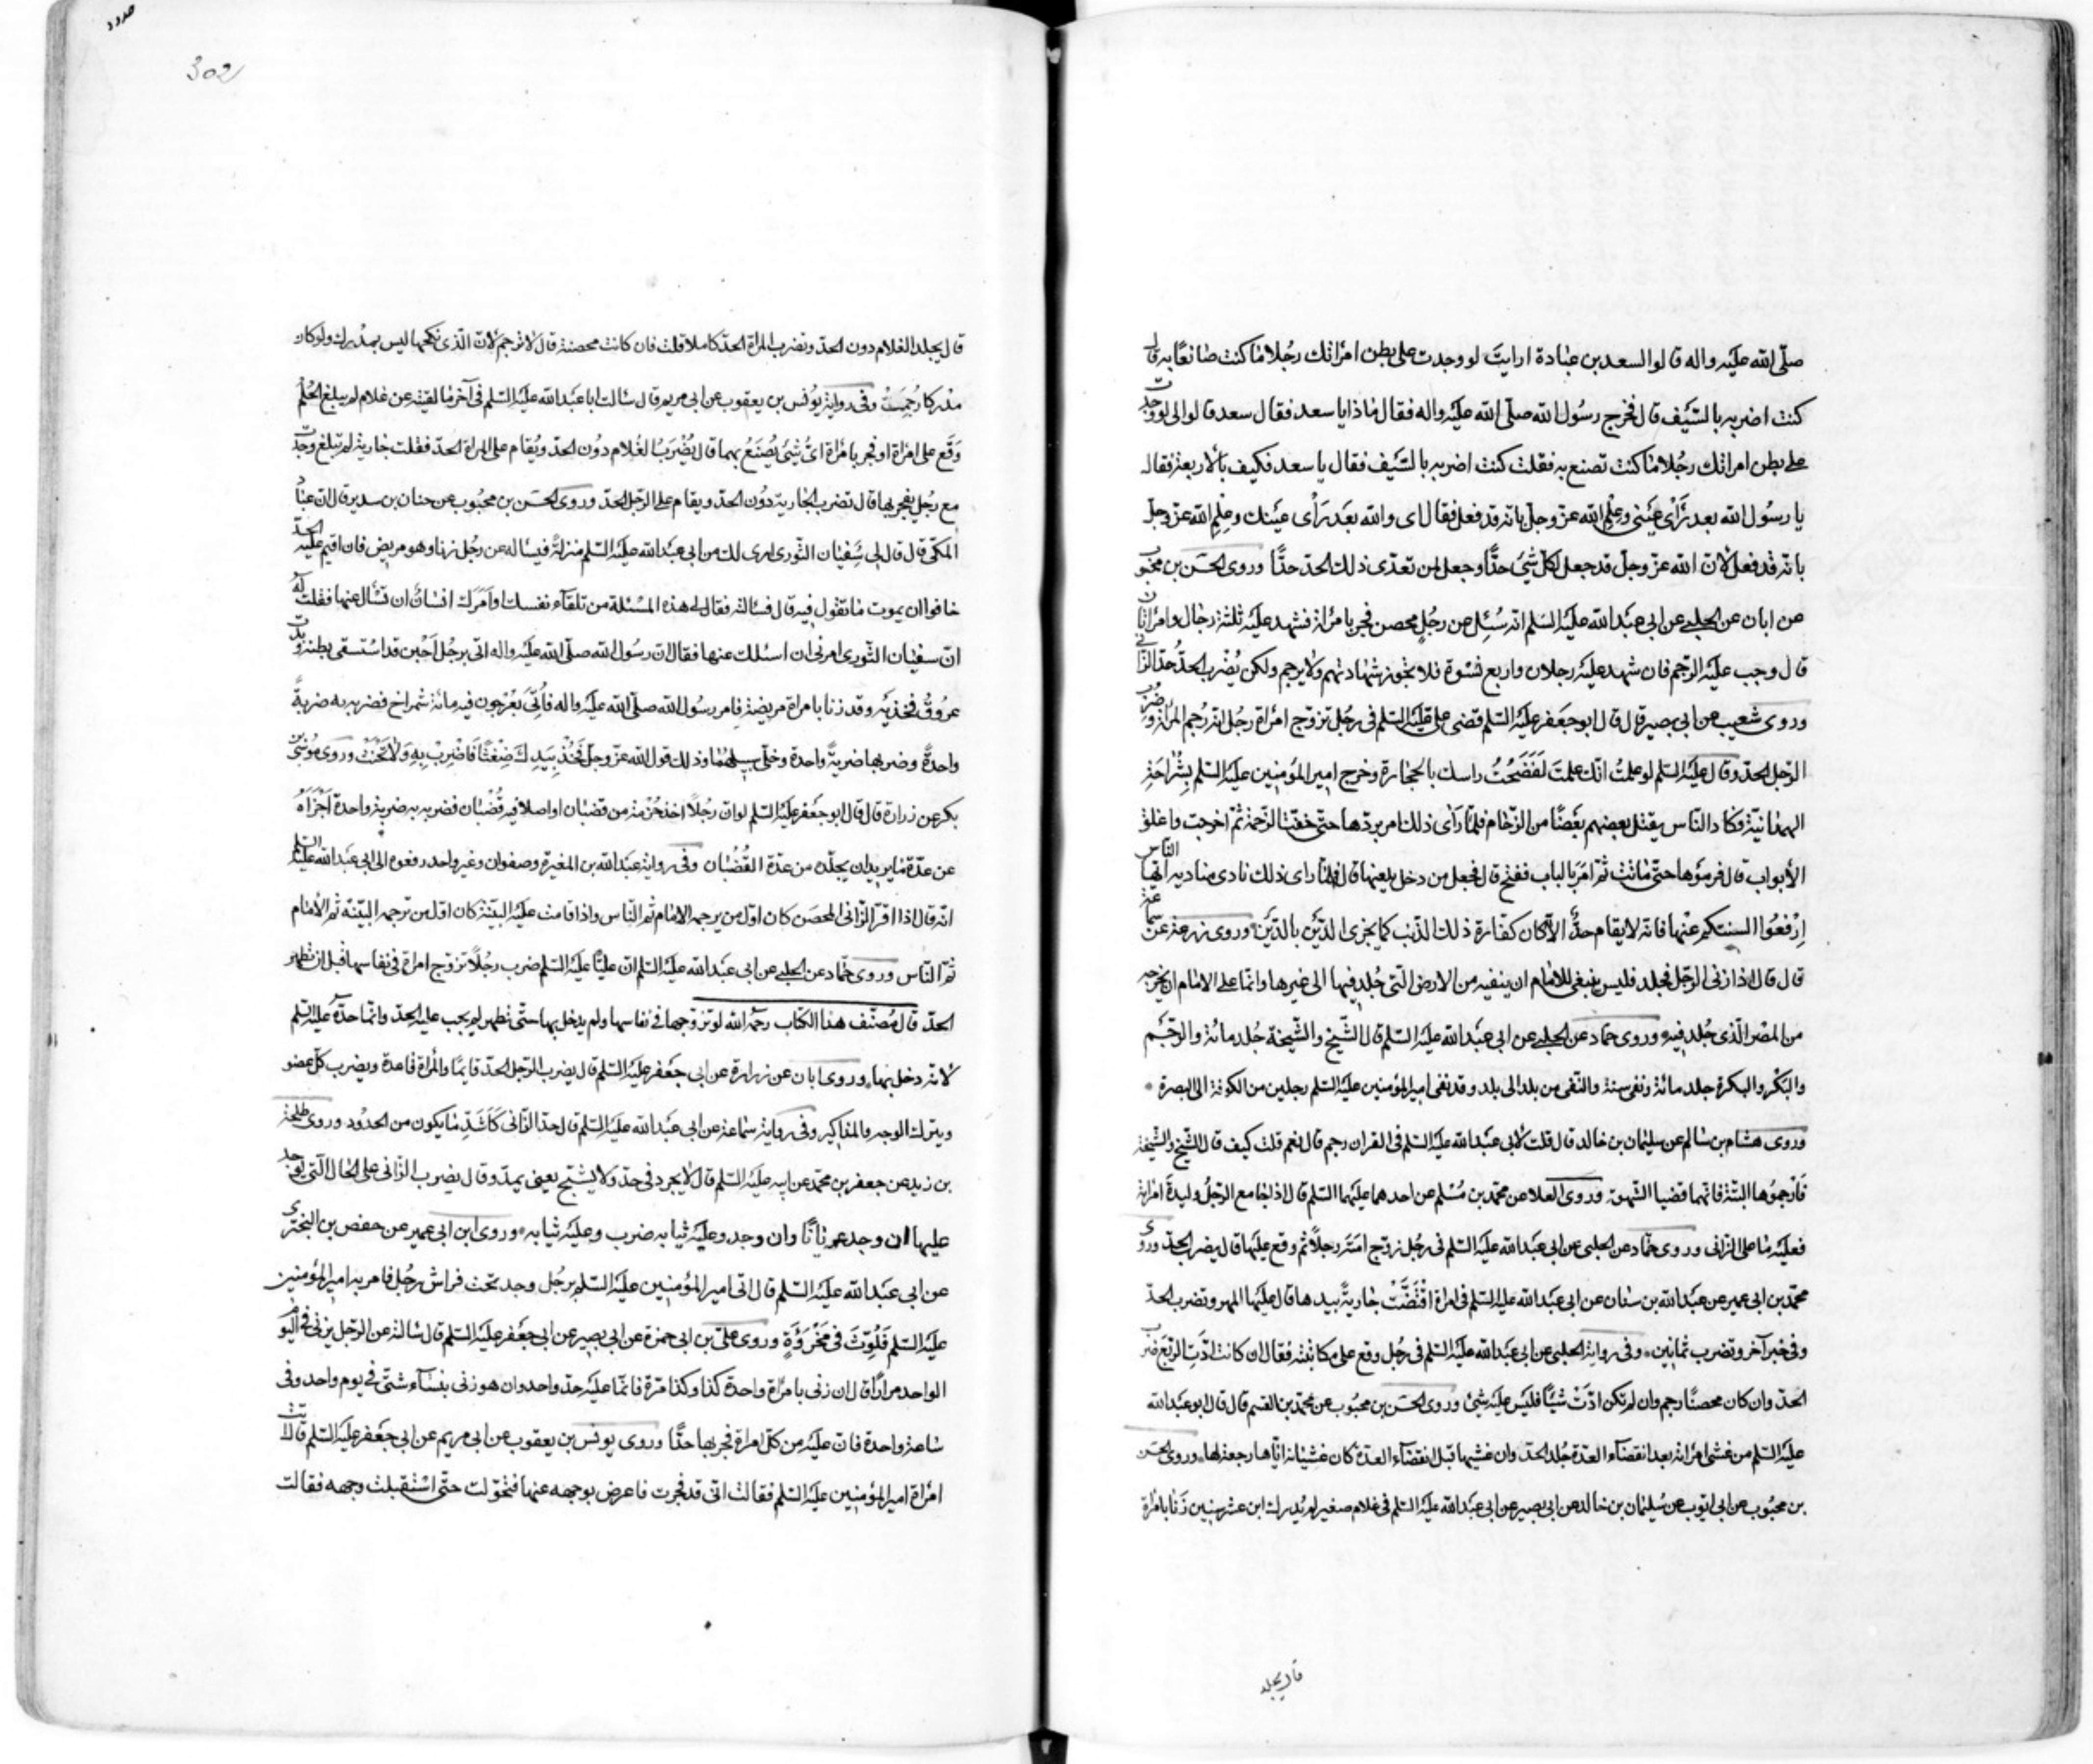 صلّى الله عليه واله قالوا لسعد بن عبادة ارايتَ لو وجدت على بطن امرأتك رجُلا ما كنت صانعًا به قال
كنت اضربه بالسّيف قال فخرج رسُول الله صلّى الله عليه واله فقال ماذا يا سعد فقال سعد قالوا لى لو وجدت
على بطن امراتك رجُلا ما كنت تصنع به فقلت كنت اضربه بالسّيف فقال يا سعد فكيف بالاربعة فقال
يا رسُول الله بعد رَأْى عَينى وعِلْم الله عزّ وجلّ بانّه قد فعل فقال اى والله بعد رَأْى عينك وعِلم الله عزّ وجلّ
بانّه قد فعل لانّ الله عزّ وجلّ قد جعل لكلّ شئ حدًّا وجعل لمن تعدّى ذلك الحدّ حدًّا وروى الحسَن بن محبُوب
عن ابان عن الحلبى عن ابى عبد الله عليه السّلم انّه سُئِل عن رجُلٍ محصن فجر بامرأة فشهد عليه ثلثة رجال وامرأتان
قال وجب عليه الرّجم فان شهد عليه رجلان واربع نسْوة فلا تجوز شهادتهم ولا يرجم ولكن يُضْرب الحدّ حدّ الزّانى
وروى شعيب عن ابى بصير قال قال ابو جعفر عليه السّلم قضى علىّ عليه السّلم فى رجُل تزوّج امرأة رجُل انّه رُجم المرأة وضُرب
الرّجل الحدّ وقال عليه السّلم لو علمتُ انّك علمتَ لَفَضَخْتُ راسك بالحجارة وخرج امير المؤمنين عليه السّلم بِشُرَاحَة
الهمدانيّة فكاد النّاس يقتل بعضهم بعضًا من الزّحام فلمّا رَأى ذلك امر بردّها حتّى خفّت الزّحمة ثمّ اخرجت واغلق
الأبواب قال فرموها حتّى ماتت ثمّ امرَ بالباب ففتح قال فجعل من دخل يلعنها قال فلمّا راى ذلك نادى مناديه ايّها النّاس
اِرْفَعُوا السنتكم عنها فانّه لا يقام حدٌّ الّا كان كفّارة ذلك الذّنب كما يجزى الدّيْن بالدّيْن وروى زرعة عن سماعة
قال قال اذا زنى الرّجل فجلد فليس ينبغى للامام ان ينفيه من الارض الّتى جُلد فيها الى غيرها وانّما على الامام ان يخرجه
من المصر الّذى جُلد فيه وروى حماد عن الحلبى عن ابى عبد الله عليه السّلم قال الشّيخ والشّيخة جُلد مائة والرّجم
والبكر والبكرة جلد مائة ونفى سنة والنّفى من بلد الى بلد وقد نفى امير المؤمنين عليه السّلم رجلين من الكوفة الى البصرة
وروى هشام بن سالم عن سليمان بن خالد قال قلت لابى عبد الله عليه السّلم فى القران رجم قال نعم قلت كيف قال الشّيخ والشّيخة
فَارْجموُها البتّة فانّهما قضيا الشّهوة وروى العلا عن محمّد بن مُسْلم عن احدهما عليهما السّلم قال اذا جامع الرّجلُ وليدة امرأته
فعليه ما على الزانى وروى حمّاد عن الحلبى عن ابى عبد الله عليه السّلم فى رجُل زوّج امَتَه رجلاً ثم وقع عليها قال يضرب الحدّ وروى
محمّد بن ابى عمير عن عبد الله بن سنان عن ابى عبد الله عليه السّلم فى امرأة اقْتَضَّتْ جاريةً بيدها قال عليها المهر وتضرب الحدّ
وفى خبر آخر وتضرب ثمانين وفى رواية الحلبى عن ابى عبد الله عليه السّلم فى رجُل وقع على مكاتبته فقال ان كانت ادّت الرّبع ضرب
الحدّ وان كان محصنًا رجم وان لم تكن ادّتْ شيئًا فليس عليه شئ وروى الحسَن بن محبُوب عن محمّد بن القسم قال قال ابو عبد الله
عليه السّلم من غشى امرأته بعد انقضآء العدة جُلد الحدّ وان غشيها قبل انقضآء العدّة كان غشيانه ايّاها رجعة لها وروى الحسَن
بن محبُوب عن ابى ايّوب عن سُليمان بن خالد عن ابى بصير عن ابى عبد الله عليه السّلم فى غلام صغير لم يُدرك ابن عشر سنين زنا بامرأة
قال يجلد
حدود
302
قال يجلد الغلام دون الحدّ وتضرب المراة الحدّ كاملا قلت فان كانت محصنة قال لا ترجم لانّ الّذى نكحها ليس بمدْرك ولو كان
مدركا رُجِمَتْ وفى رواية يُونس بن يعقوب عن ابى مريم قال سالت ابا عبد الله عليه السّلم فى آخر ما لقيته عن غلام لم يبلغ الحُلم
وَقَع على امرأة او فجر بامرأة اىُّ شَئ يُصْنَعُ بهما قال يُضْرَبُ الغلام دوُن الحدّ ويُقام على المراة الحدّ فقلت جارية لم تبلغ وجدت
مع رجُل يفجر بها قال تضرب الجارية دوُن الحدّ ويقام على الرّجل الحدّ وروى الحسَن بن محبُوب عن حنان بن سدير قال انّ عبّاد
المكّى قال قال لى سفيان الثّورى ارى لك من ابى عبد الله عليه السّلم منزلةً فيساله عن رجُل زنا وهو مريض فان اقيم عليه الحدّ
خافوا ان يموت ما تقول فيه قال فسالته فقال لى هذه المسئلة من تلقآء نفسك او اَمَرَك انسانٌ ان تسْأل عنها فقلت له
انّ سفيان الثّورى امرنى ان اسئلك عنها فقال انّ رسُول الله صلّى الله عليه واله اُتى برجُل اَحْبَن قد اسْتسقى بطنه وبدت
عرُوقُ فخذيه وقد زنا بامراة مريضة فامر رسُول الله صلّى الله عليه واله فاُتىَ بعُرْجون فيه مائة شمراخ فضربه به ضربةً
واحدةً وضربها ضربةً واحدة وخلّى سبيلهُما وذلك قول الله عزّ وجلّ فَخُذْ بِيَدِكَ ضِغْثًا فَاضْرِبْ بِهِ وَلا تَحْنَثْ وروى مُوسَى بن
بكر عن زرارة قال قال ابو جعفر عليه السّلم لو انّ رجُلاً اخذ حُزمة من قضبان او اصلا فيه قُضْبان فضربه به ضربة واحدة اَجْزاَهُ
عن عدّة ما يريد ان يجلّده من عدّة القُضْبان وفى رواية عبد الله بن المغيرة وصفوان وغير واحد رفعوه الى ابى عبد الله عليه السّلم
انّه قال اذا اقرّ الزّانى المحصَن كان اوّل من يرجمه الامام ثم النّاس واذا قامت عليه البيّنة كان اوّل من ترجمه البيّنه ثم الأمام
ثمّ النّاس وروى حمّاد عن الحلبى عن ابى عبد الله عليه السّلم انّ عليًّا عليه السّلم ضرب رجُلاً تزوّج امراة فى نفاسها قبل ان تطهر
الحدّ قال مُصنّف هذا الكتاب رحمه الله لو تزوّجها فى نفاسها ولم يدخل بها حتّى تطهر لم يجب عليه الحدّ وانّما حدّه عليه السّلم
لانّه دخل بها وروى ابان عن زرارة عن ابى جعفر عليه السّلم قال يضرب الرّجل الحدّ قايمًا والمرأة قاعدة ويضرب كلّ عضو
ويترك الوجه والمذاكير وفى رواية سماعة عن ابى عبد الله عليه السّلم قال حدّ الزّانى كَاَشَدِّ ما يكون من الحدُود وروى طلحة
بن زيد عن جعفر بن محمّد عن ابيه عليه السّلم قال لا يجرد فى حدّ وَلا يشبّح يعنى يمدّ وقال يضرب الزّانى على الحال الّتى يوجد
عليها ان وجد عريانًا وان وجد وعليه ثيابه ضرب وعليه ثيابه وروى ابن ابى عمير عن حفص بن البخترى
عن ابى عبد الله عليه السّلم قال اتى امير المؤمنين عليه السّلم برجُل وجد تحت فراش رجُل فامر به امير المؤمنين
عليه السّلم فَلُوّثَ فى مَخْرؤَةٍ وروى علىّ بن ابى حمزة عن ابى بصير عن ابى جعفر عليه السّلم قال سالته عن الرّجل يزنى فى اليوم
الواحد مرارًا قال ان زنى بامرأة واحدة كذا وكذا مّرة فانّما عليه حدّ واحد وان هو زنى بنسآء شتّى فى يوم واحد وفى
ساعة واحدة فانّ عليه من كلّ امراة فجر بها حدًّا وروى يونس بن يعقوب عن ابى مريم عن ابى جعفر عليه السّلم قال اتت
امرأة امير المؤمنين عليه السّلم فقالت انّى قد فجرت فاعرض بوجهه عنها فتحوّلت حتّى اسْتقبلت وجهه فقالت